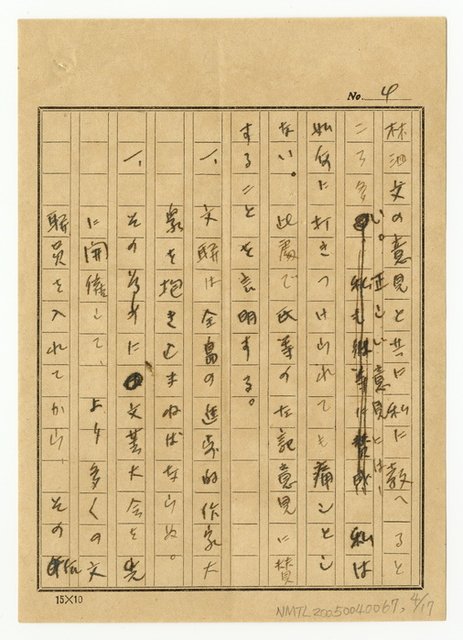 No. 4
林沺文の意見と共に私に教へると
ころ多い。正しい意見とは、私は
如何に打きつけられても痛しとし
ない。此處で氏等の左記意見に賛
することを言明する。
一、文聯は全島の進歩的作家大
衆を抱き込まねばならぬ。
一、その為めに文藝大会を先
に開催して、より多くの文
聯員を入れてから、その
15×10
NMTL20050040067, 4/17